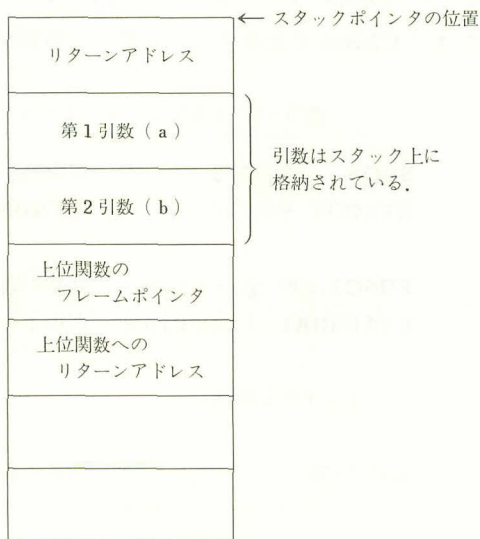 ← スタックポインタの位置
リターンアドレス
第1引数(a)
引数はスタック上に
格納されている.
第2引数(b)
上位関数の
フレームポインタ
上位関数への
リターンアドレス